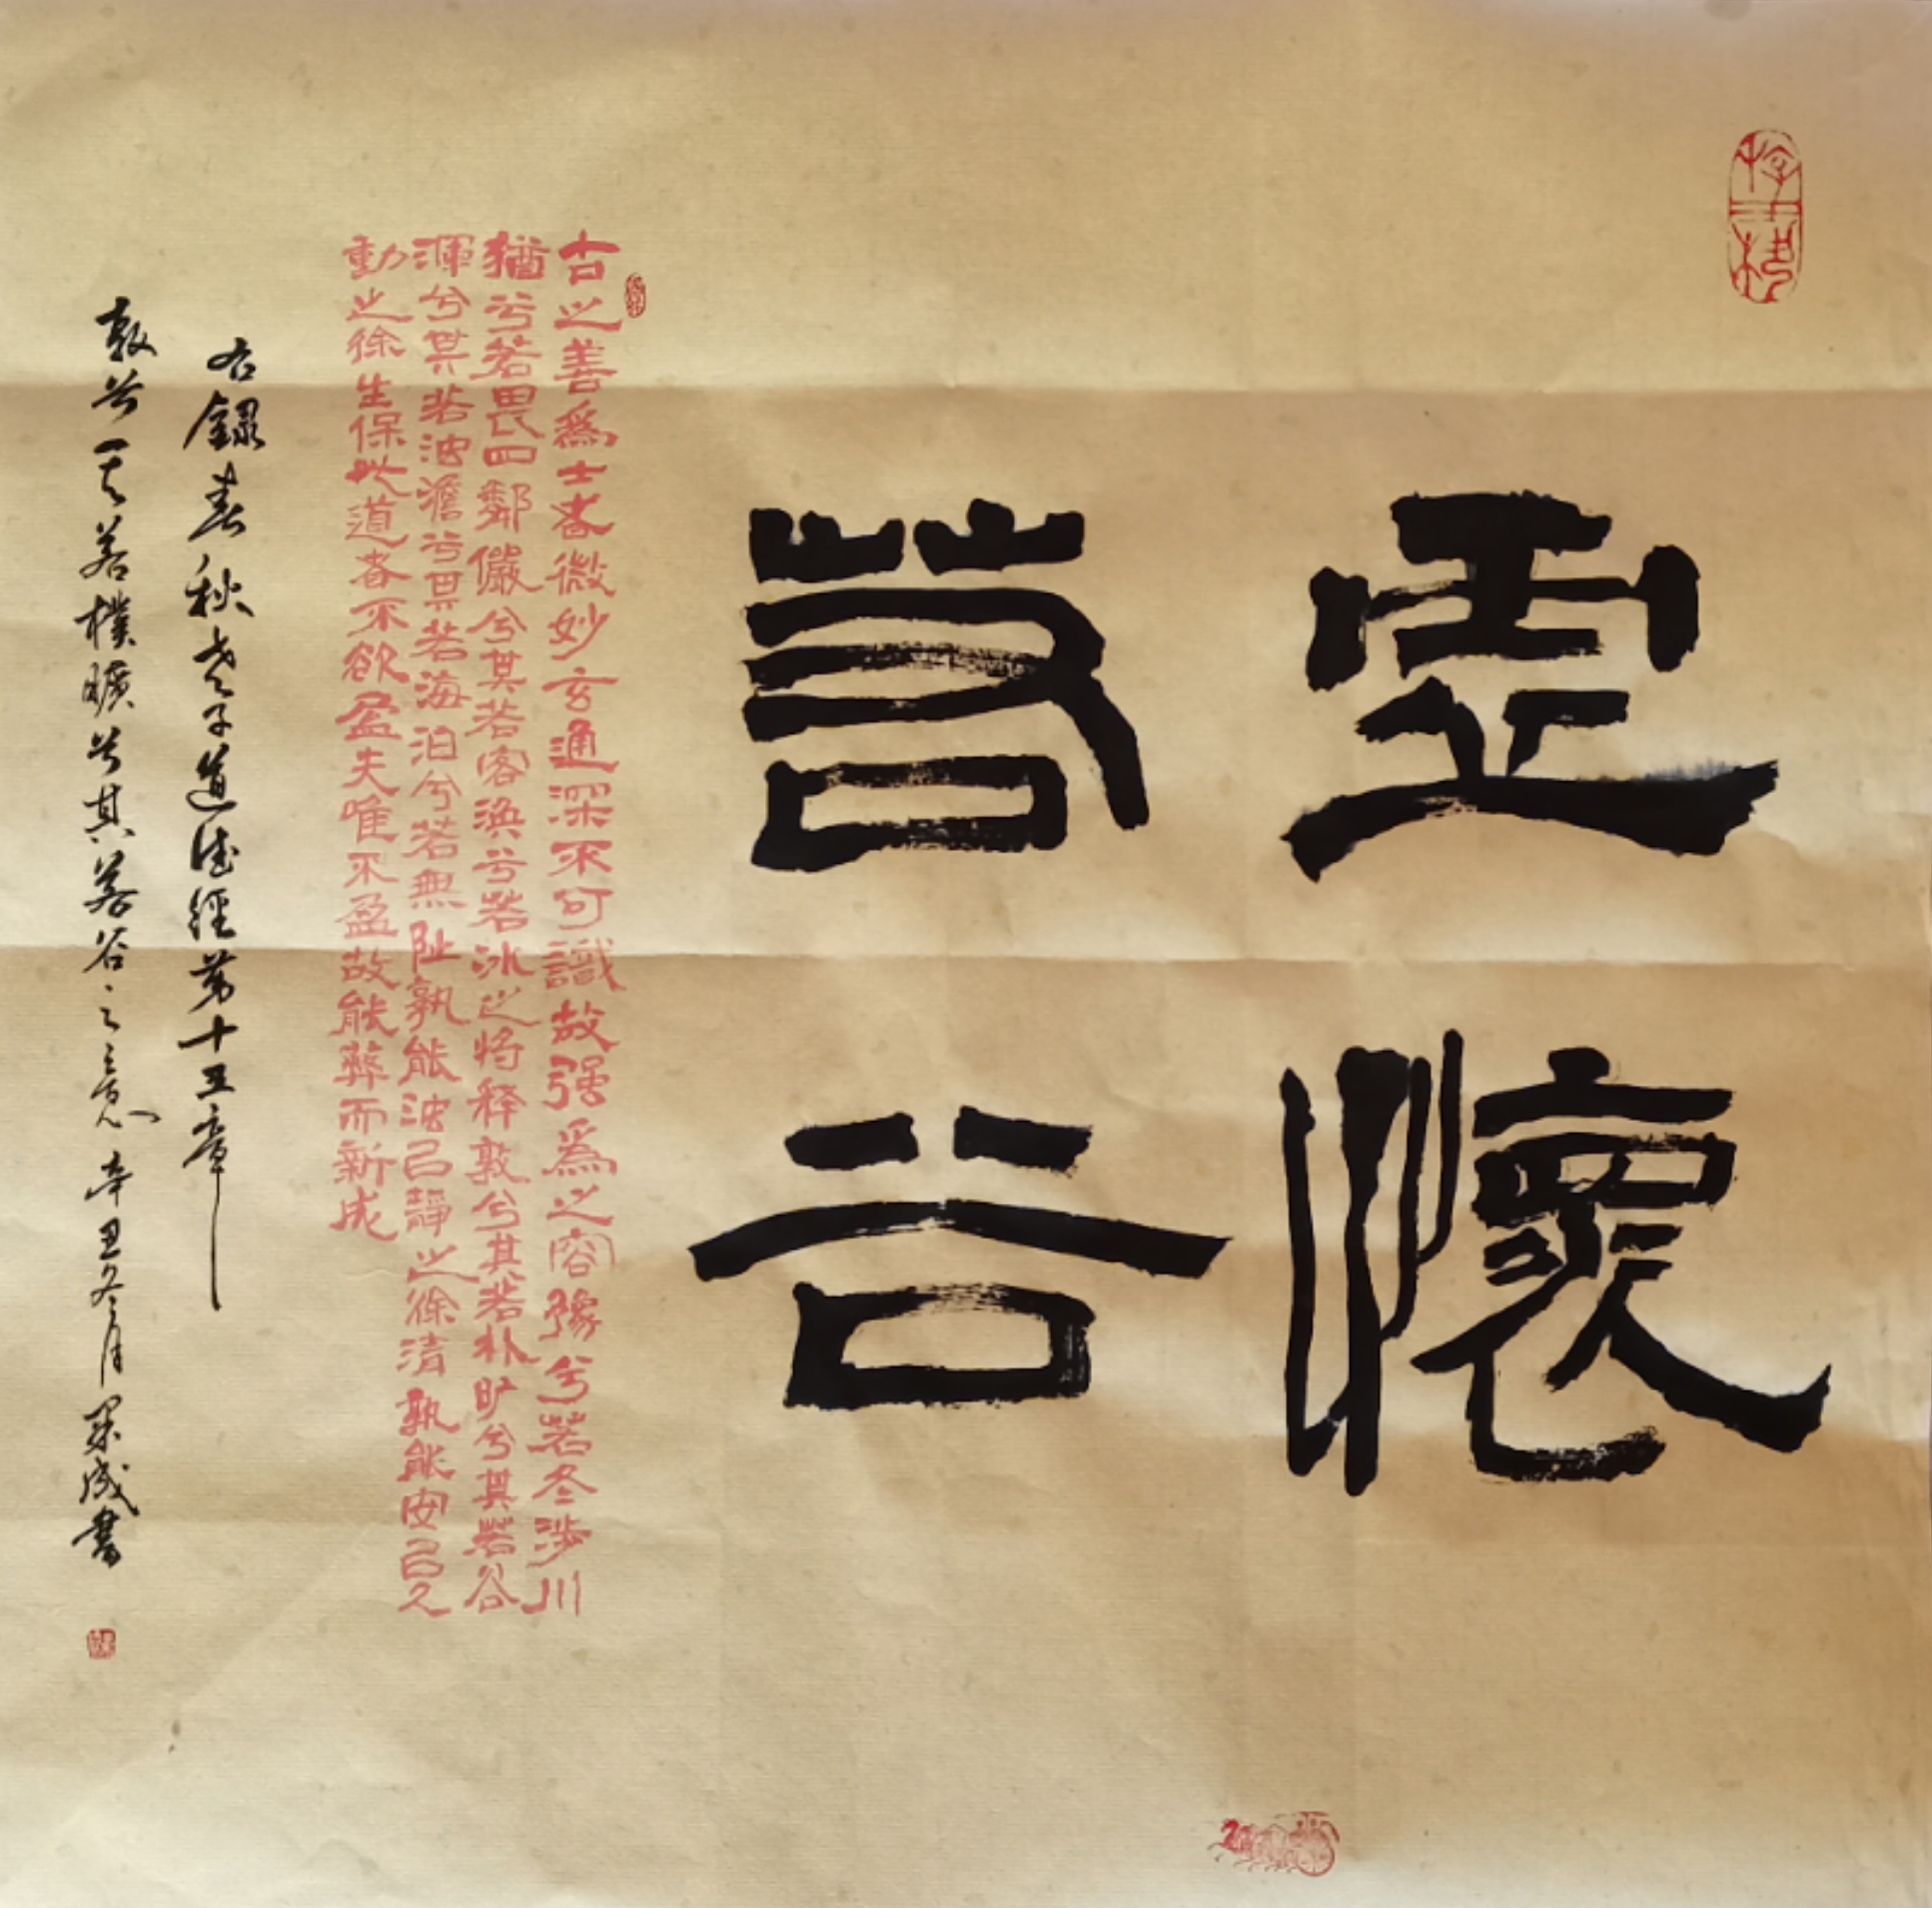 虛懷
若谷
古之善爲士者微妙玄通深不可識故强爲之容豫兮若冬涉川
猶兮若畏四鄰儼兮其若客渙兮若冰之将释敦兮其若朴旷兮其若谷
渾兮其若浊澹兮其若海泊兮若無阯孰能浊㠯靜之徐清孰能安㠯久
動之徐生保此道者不欲盈夫唯不盈故能蔽而新成
右錄春秋老子道德經第十五章
敦兮其若樸曠兮其若谷之意辛丑冬月成書